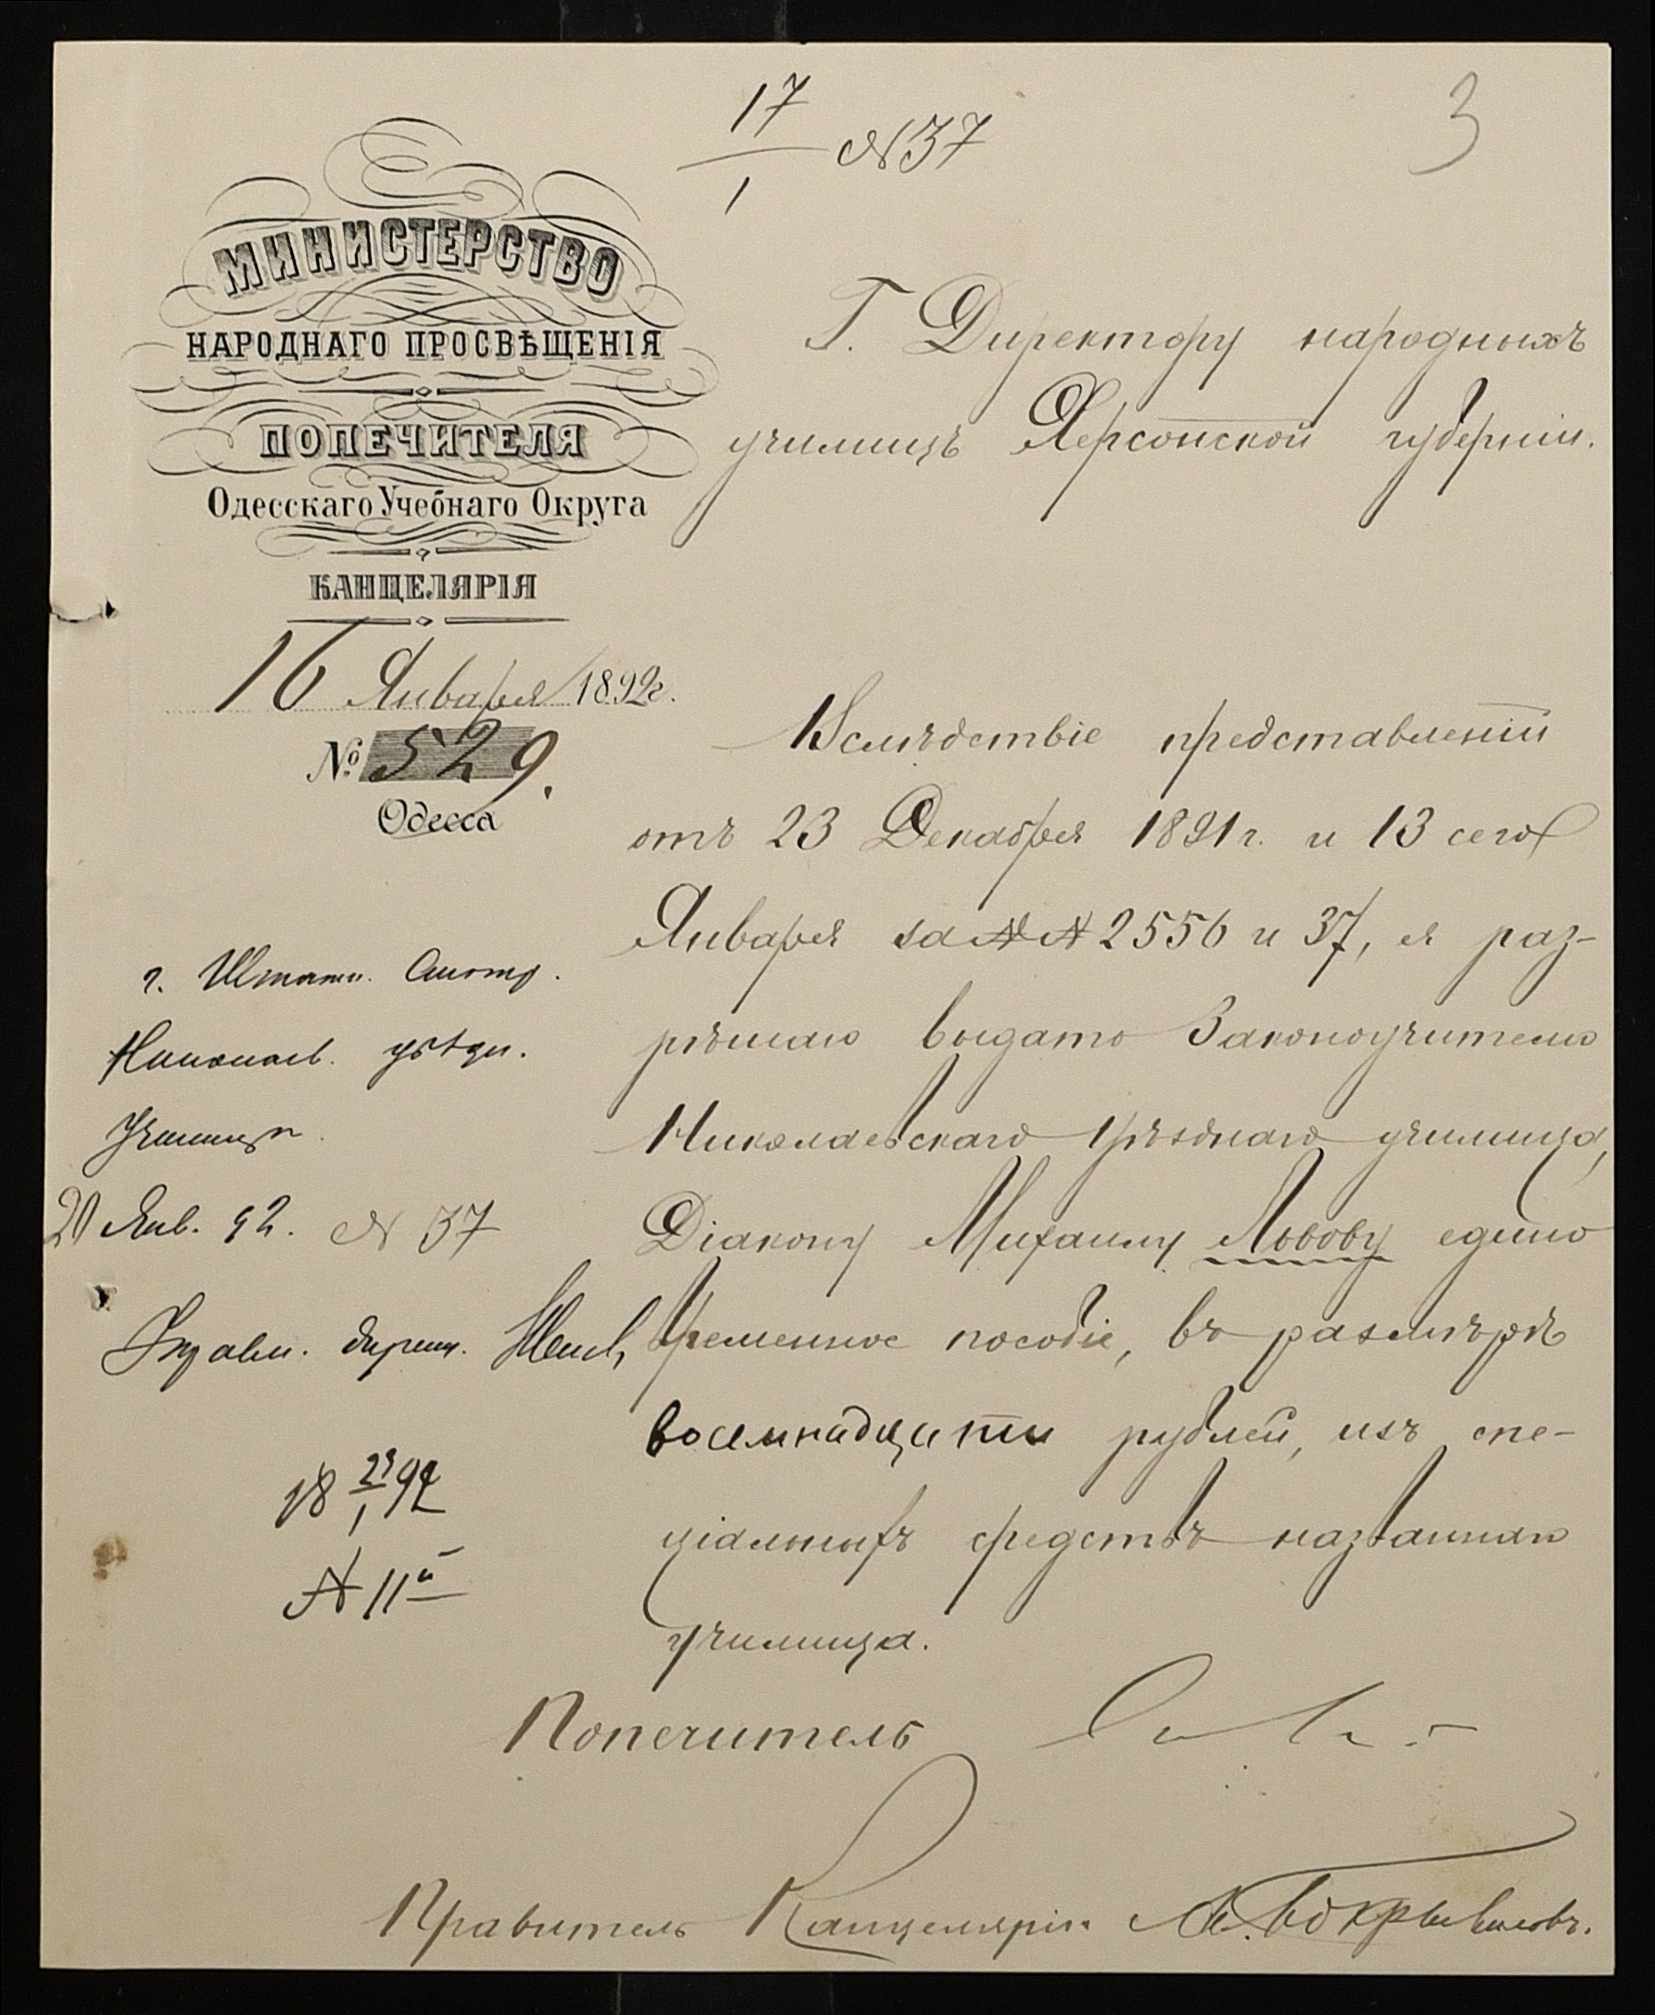 17
1
№ 37
3
МИНИСТЕРСТВО
НАРОДНАГО ПРОСВѢЩЕНІЯ
ПОПЕЧИТЕЛЯ
Одесскаго Учебнаго Округа
КАНЦЕЛЯРІЯ
16 Января 1892 г.
№ 529.
Одесса
Г. Директору народныхъ
училищъ Херсонской губерніи.
Вслѣдствіе представленій
отъ 23 Декабря 1891 г. и 13 сего
Января за №№ 2556 и 37, я раз-
рѣшаю выдать Законоучителю
Николаевскаго уѣзднаго училища,
Діакону Михаилу Львову едино
временное пособіе, въ размѣрѣ
восемнадцати рублей, изъ спе-
ціальныхъ средствъ названнаго
училища.
Попечитель
Правитель Канцеляріи
г. Штатн. Смотр.
Николаев. уѣздн.
училища.
20 Янв. 92. № 37
дирек.
18 23/1 92
№ 11й